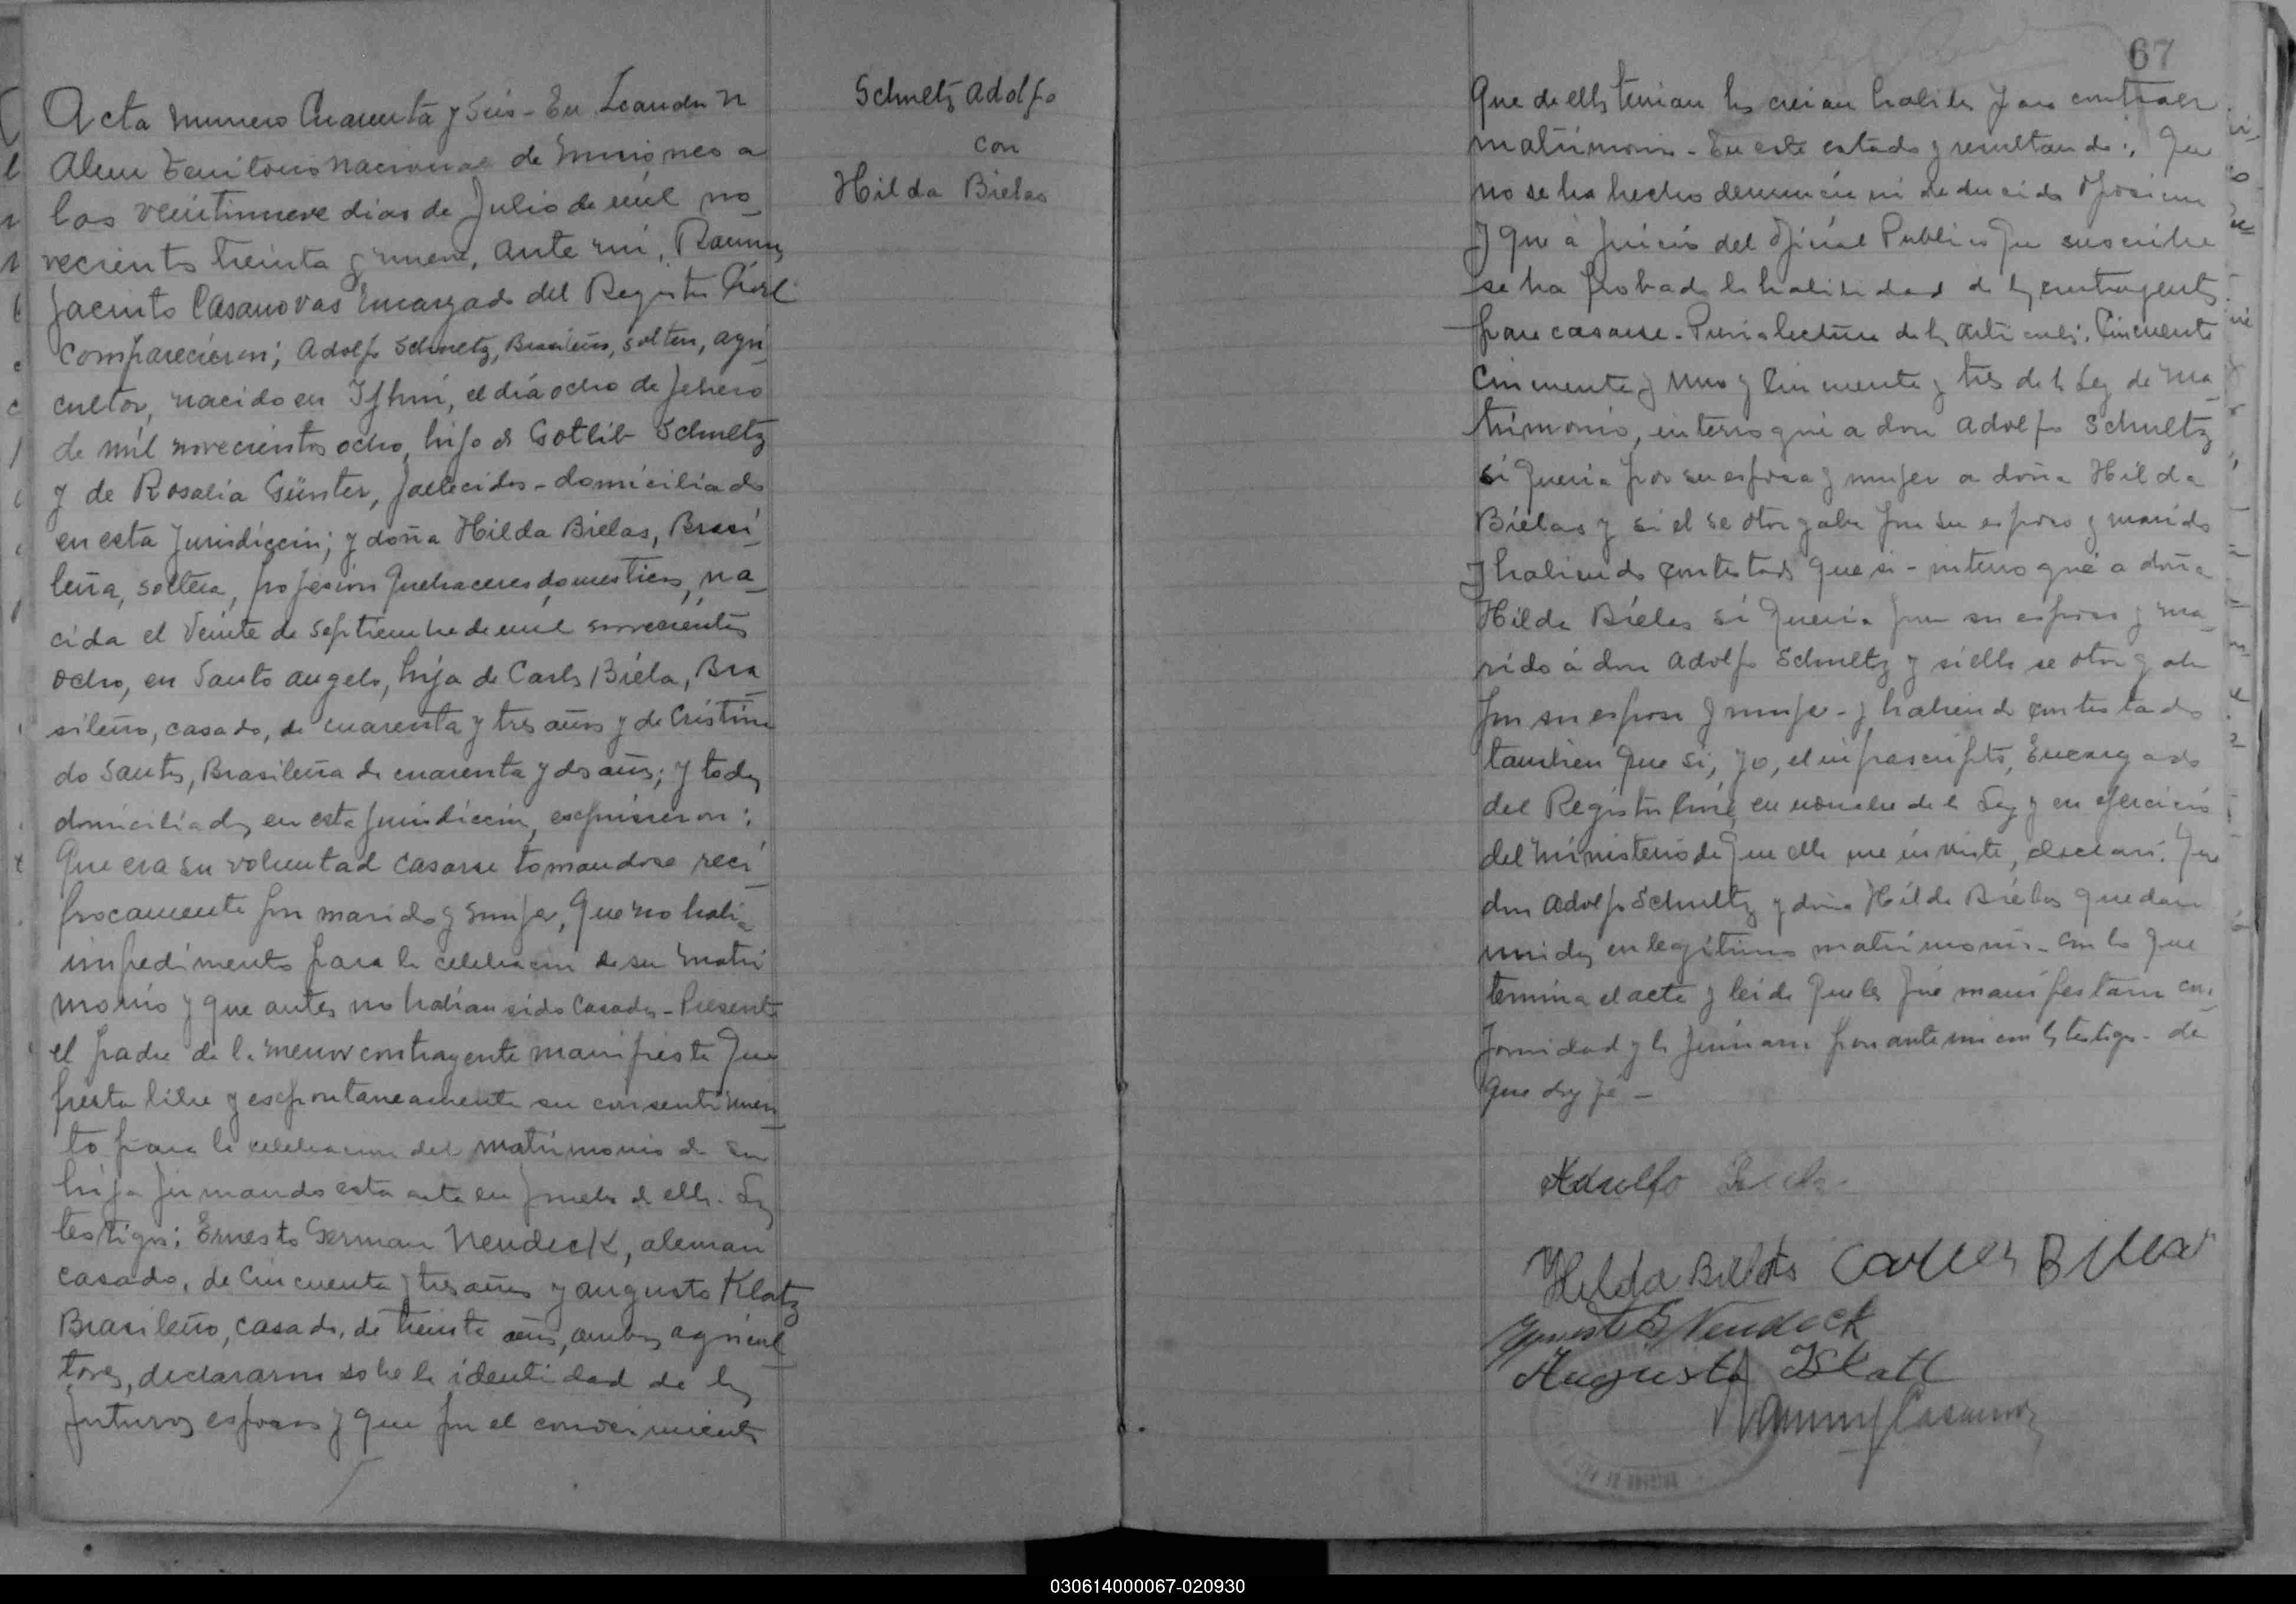 Acta numero Cuarenta y Seis - En Leandro N
Alem Territorio nacional de Misiones a
los veintinueve dias de Julio de mil no_
vecientos treinta y nueve, ante mi, Ramon
Jacinto Casanovas Encargado del Registro Civil
comparecieron; Adolfo Schultz, Brasileño, soltero, agri_
cultor, nacido en Ijhui, el dia ocho de febrero
de mil novecientos ocho, hijo de Gotlib Schultz
y de Rosalia Günter, fallecidos - domiciliado
en esta Jurisdiccion; y doña Hilda Bielas, Brasi_
leña, soltera, profesion quehaceres domesticos, na_
cida el Veinte de Septiembre de mil novecientos
ocho, en Santo angelo, hija de Carlos Biela, Bra_
sileño, casado, de cuarenta y tres años y de Cristina
do Santos, Brasileña de cuarenta y dos años; y todos
domiciliados en esta jurisdiccion, expusieron:
Que era su voluntad casarse tomandose reci_
procamente por marido y mujer, Que no habia
impedimento para la celebracion de su matri
monio y que antes no habian sido casados - Presente
el padre de la menor contrayente manifiesta Que
presta libre y espontaneamente su consentimien_
to para la celebracion del matrimonio de su
hija firmando esta acta en prueba de ello. Los
testigos: Ernesto German Neudeck, aleman
casado, de Cincuenta y tres años y augusto Klatz
Brasileño, casado, de treinta años, ambos agricul_
tores, declararon sobre la identidad de los
futuros esposos y que por el conocimiento
Schultz Adolfo
con
Hilda Bielas
67
Que de ellos tenian los creian habiles para contraer
matrimonio - En este estado y resultando: Que
no se ha hecho denuncia ni deducido oposicion
y Que a juicio del Oficial Publico Que suscribe
se ha probado la habilidad de los contrayentes
para casarse - Previa lectura de los articulos: Cincuenta
Cincuenta y uno y Cincuenta y tres de la Ley de Ma_
trimonio, interrogué a don Adolfo Schultz
si Queria por su esposa y mujer a doña Hilda
Bielas y si el se otorgaba por su esposo y marido
y habiendo contestado Que si - interrogué a doña
Hilda Bielas si Queria por su esposo y ma_
rido á don Adolfo Schultz y si ella se otorgaba
por su esposa y mujer - y habiendo contestado
tambien Que si, yo, el infrascripto, Encargado
del Registro Civil, en nombre de la Ley y en ejercicio
del ministerio de Que ella me inviste, declaro: Que
don Adolfo Schultz y doña Hilda Bielas quedan
unidos en legitimo matrimonio - Con lo Que
termina el acta y leida Que les fue manifestaron con_
formidad y la firmaron por ante mi con los testigos - de
Que doy fe -
Adolfo
Hilda Bielas Carlos Bielas
Ernesto G Neudeck
Augusto Klatt
Ramon J Casanovas
030614000067-020930